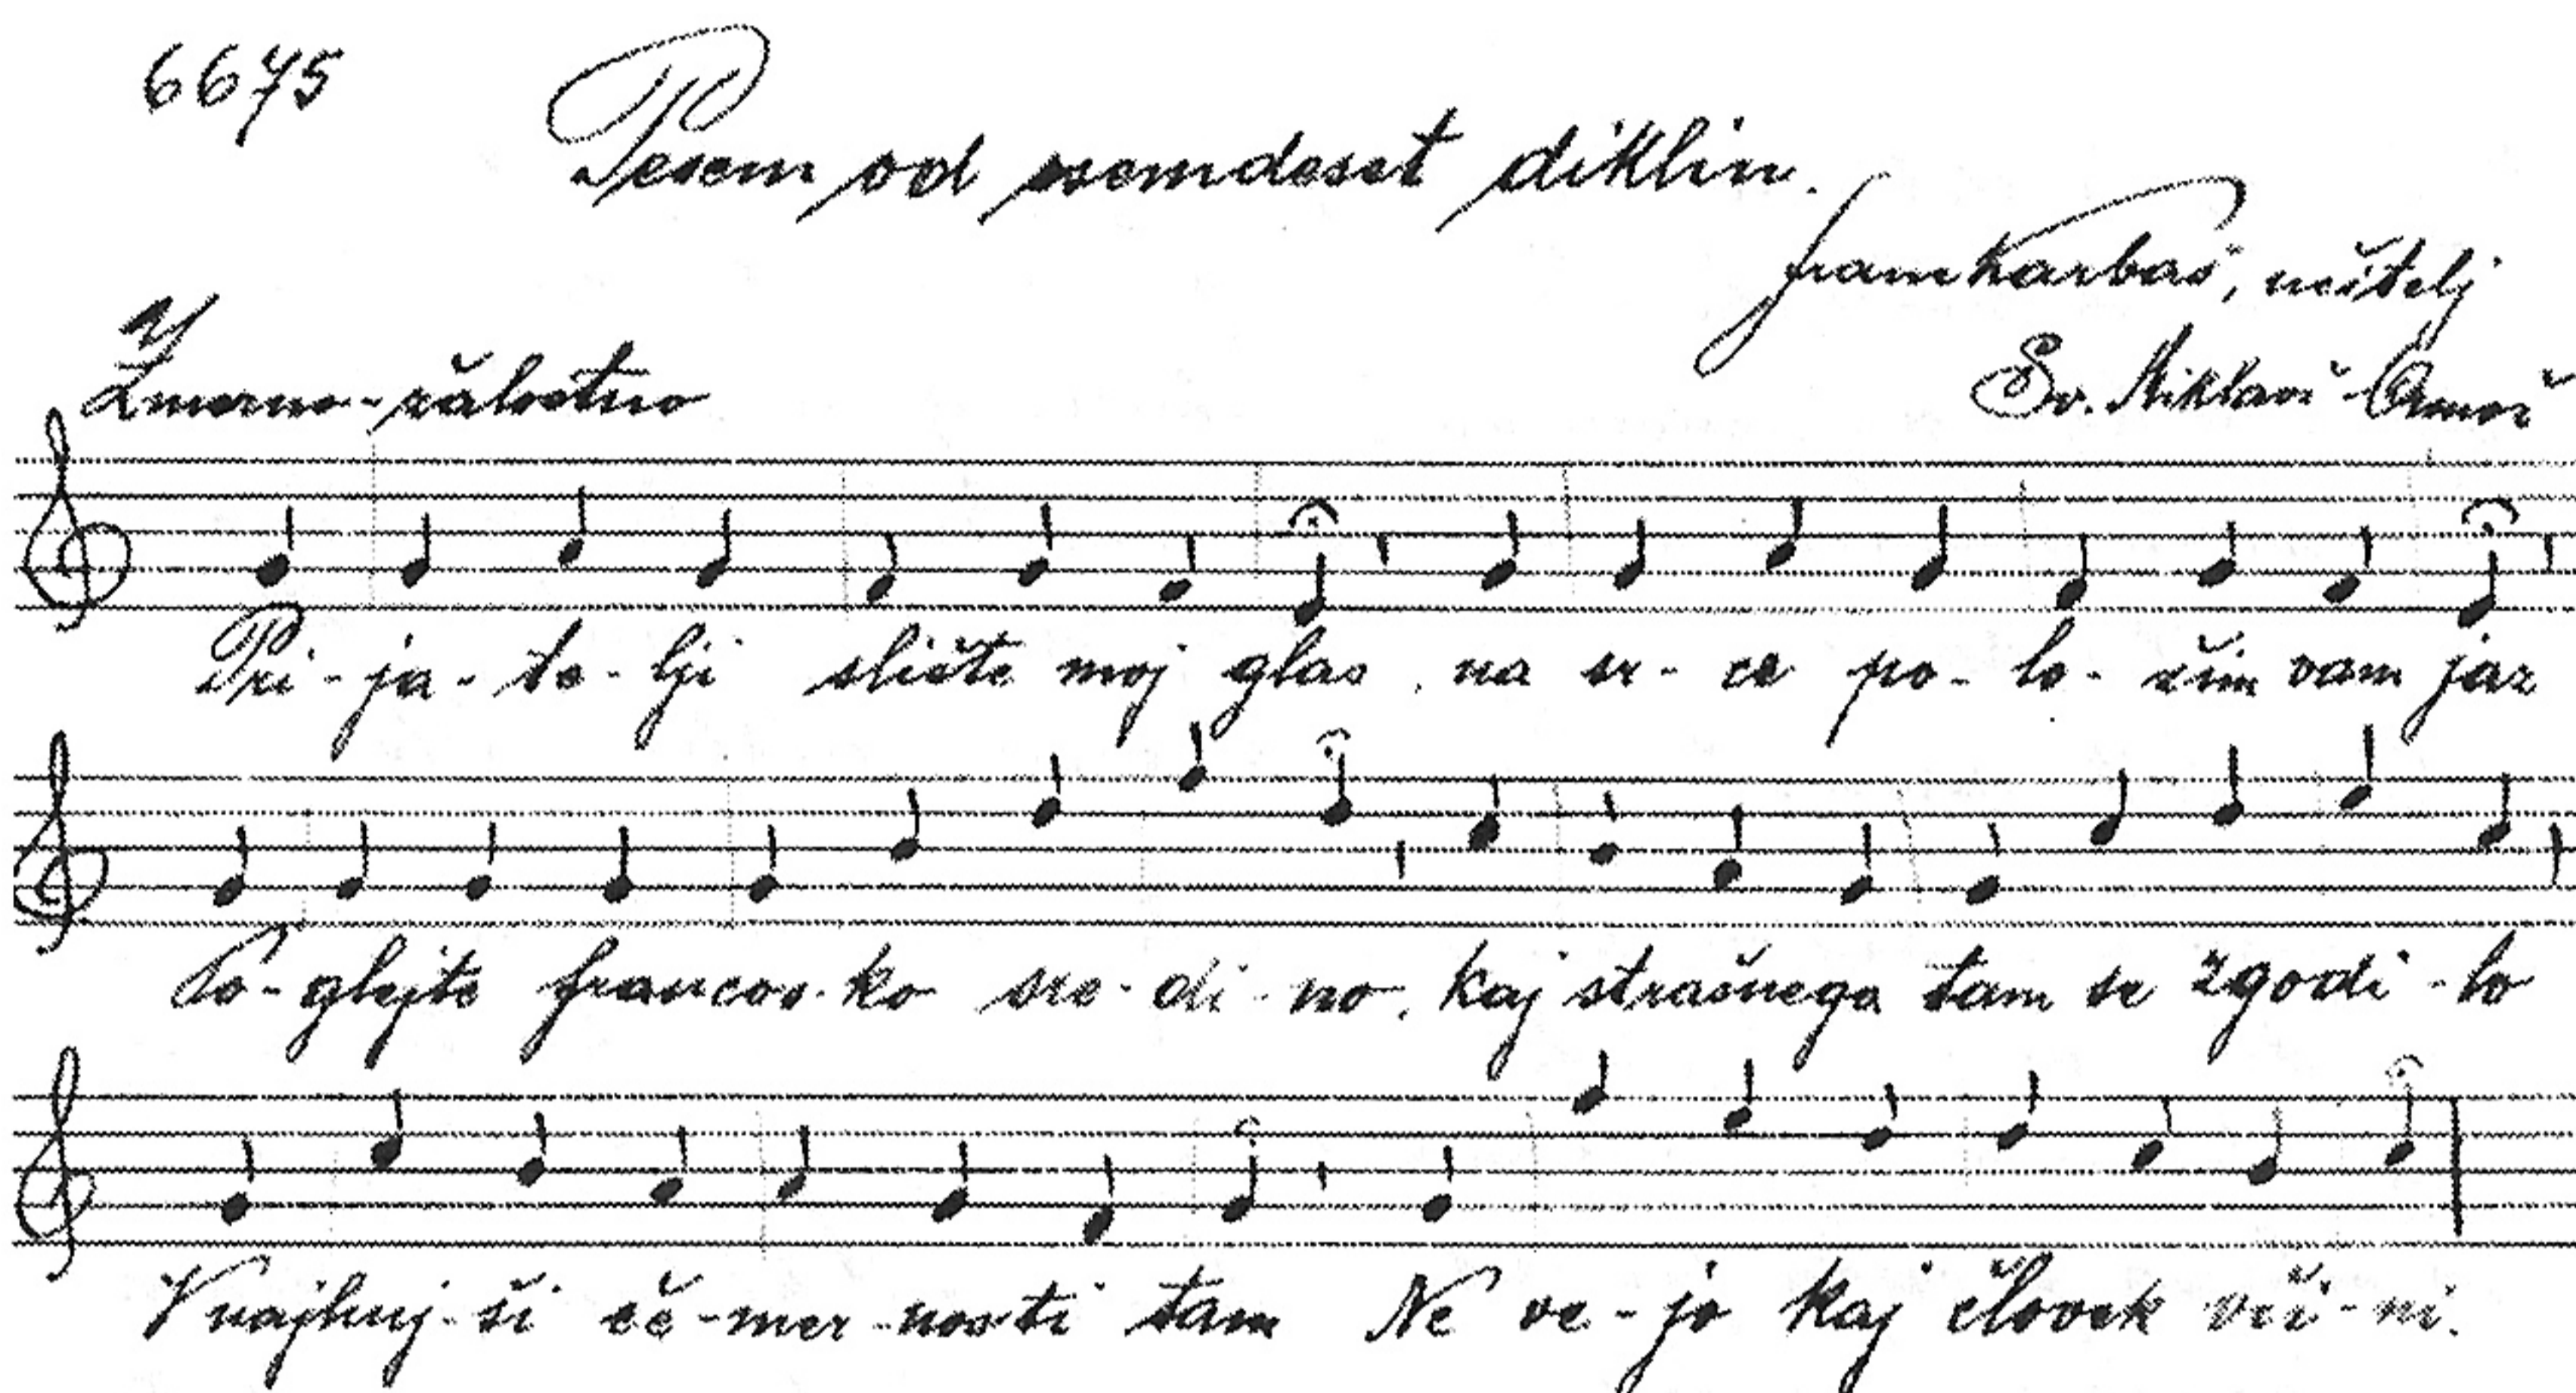 6675
Pesem od osemdeset diklin.
Fran Karbaš, učitelj
Zmerno-žalostno
Sv. Miklavž - Ormož
Pri-ja-te-lji slište moj glas, na sr-ce po-lo-žim vam jaz
Po-glejte francos-ko sre-di-no, kaj strašnega tam se zgodi-lo
V najhuj-ši če-mer-nosti tam Ne ve-jo kaj človek vči-ni.